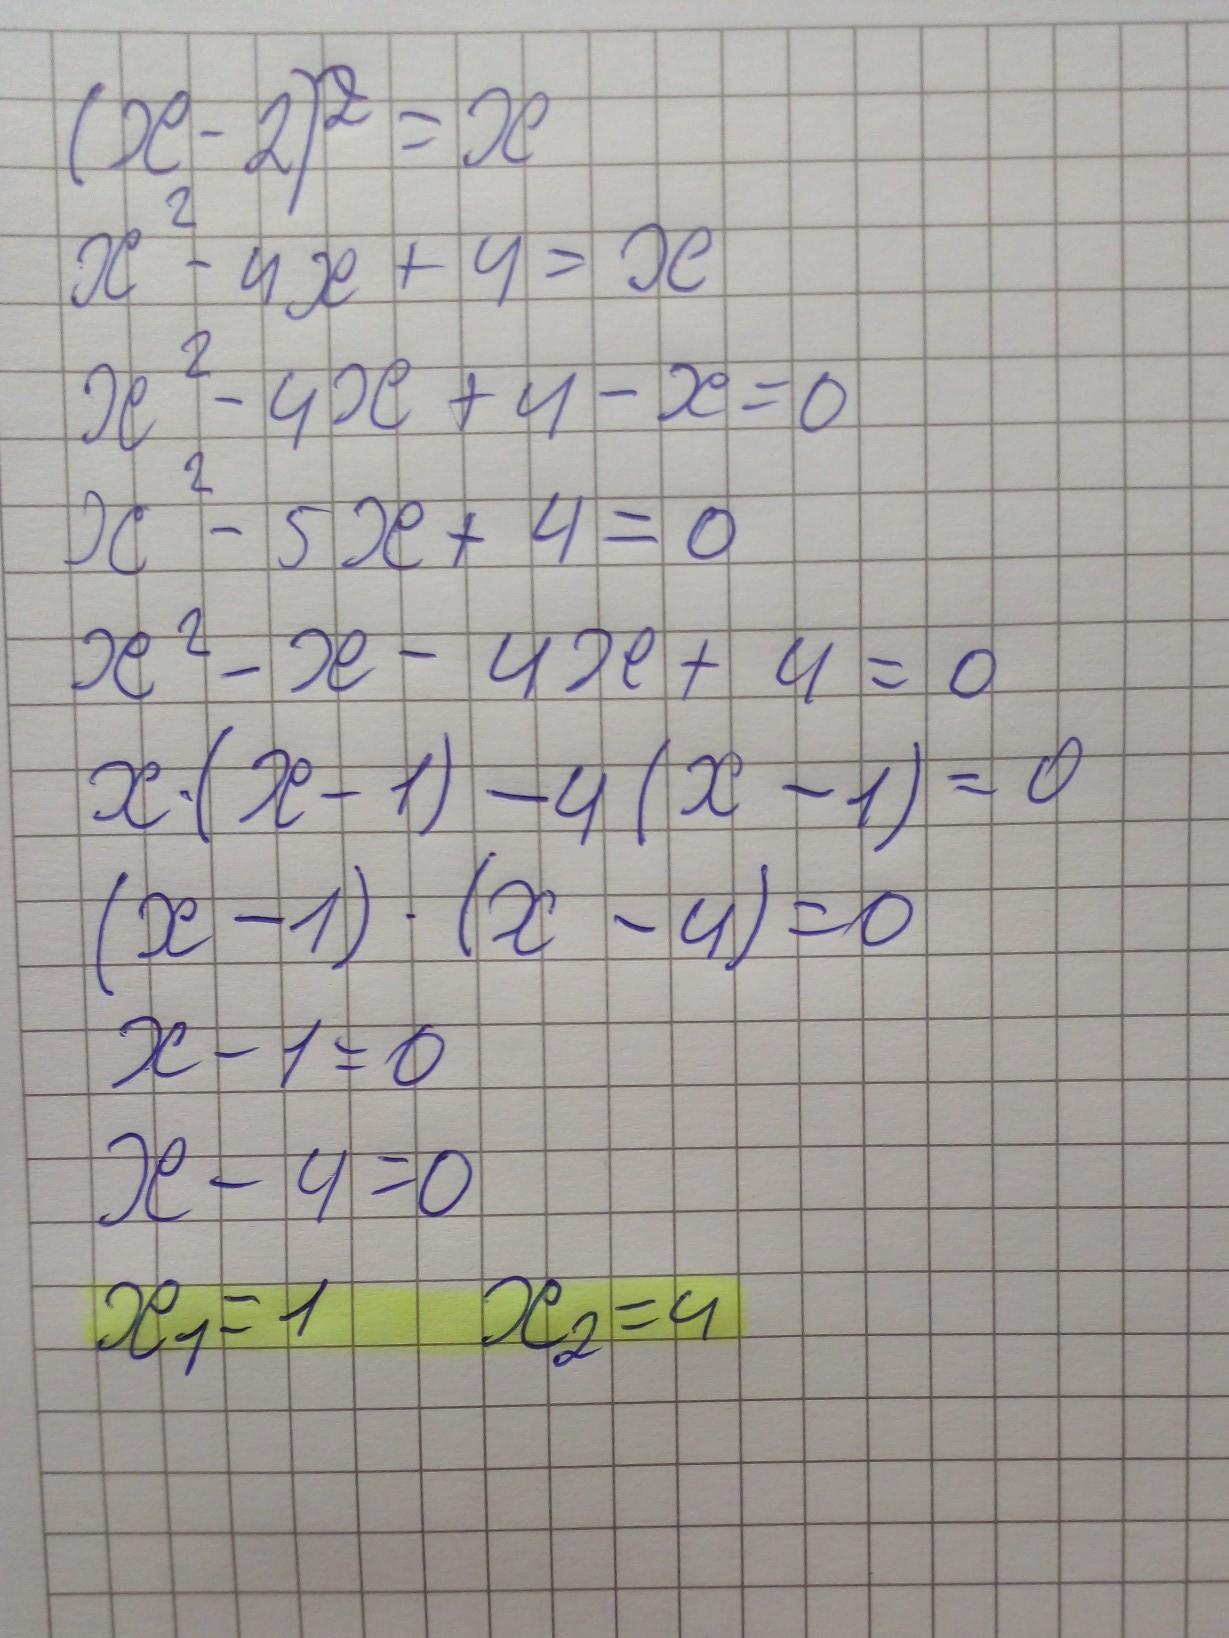 (x-2)² = x
x² - 4x + 4 = x
x² - 4x + 4 - x = 0
x² - 5x + 4 = 0
x² - x - 4x + 4 = 0
x·(x-1) - 4(x-1) = 0
(x-1)·(x-4) = 0
x - 1 = 0
x - 4 = 0
x₁ = 1 x₂ = 4